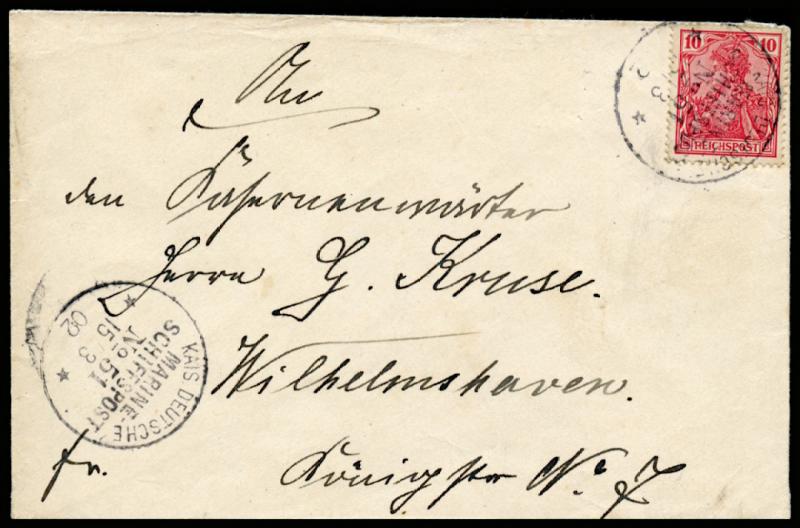 10 10
REICHSPOST
An
den Kasernenwärter
Herrn G. Kruse.
Wilhelmshaven.
fr. Königstr No 7
KAIS DEUTSCHE
MARINE-
SCHIFFSPOST
No 51
15 3
02